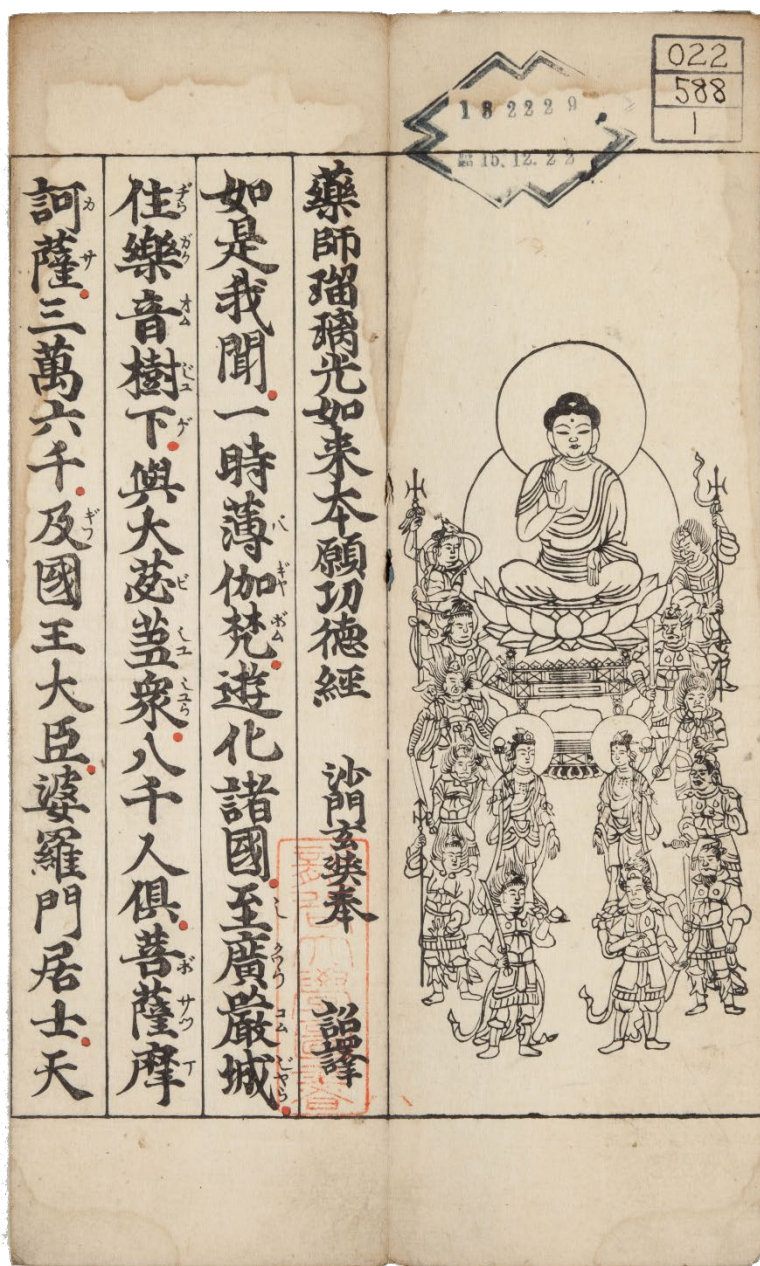 022
588
1
182229
藥師瑠璃光如来本願功德經 沙門玄奘奉 詔譯
如是我聞一時薄伽梵遊化諸國至廣嚴城
住樂音樹下與大苾蒭衆八千人俱菩薩摩
訶薩三萬六千及國王大臣婆羅門居士天